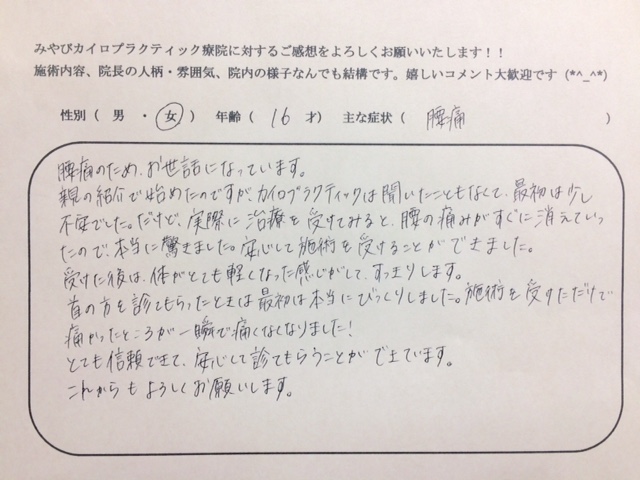 みやびカイロプラクティック療院に対するご感想をよろしくお願いいたします！！
施術内容、院長の人柄・雰囲気、院内の様子なんでも結構です。嬉しいコメント大歓迎です (*^_^*)
性別（ 男 ・ 女 ） 年齢（ 16 才） 主な症状（ 腰痛 ）
腰痛のため、お世話になっています。
親の紹介で始めたのですが、カイロプラクティックは聞いたこともなくて、最初は少し
不安でした。だけど、実際に治療を受けてみると、腰の痛みがすぐに消えていっ
たので、本当に驚きました。安心して施術を受けることができました。
受けた後は、体がとても軽くなった感じがして、すっきりします。
首の方を診てもらったときは最初は本当にびっくりしました。施術を受けただけで
痛かったところが一瞬で痛くなくなりました！
とても信頼できて、安心して診てもらうことができています。
これからもよろしくお願いします。